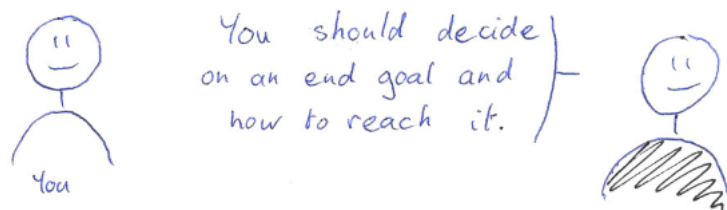 You should decide
on an end goal and
how to reach it.
You